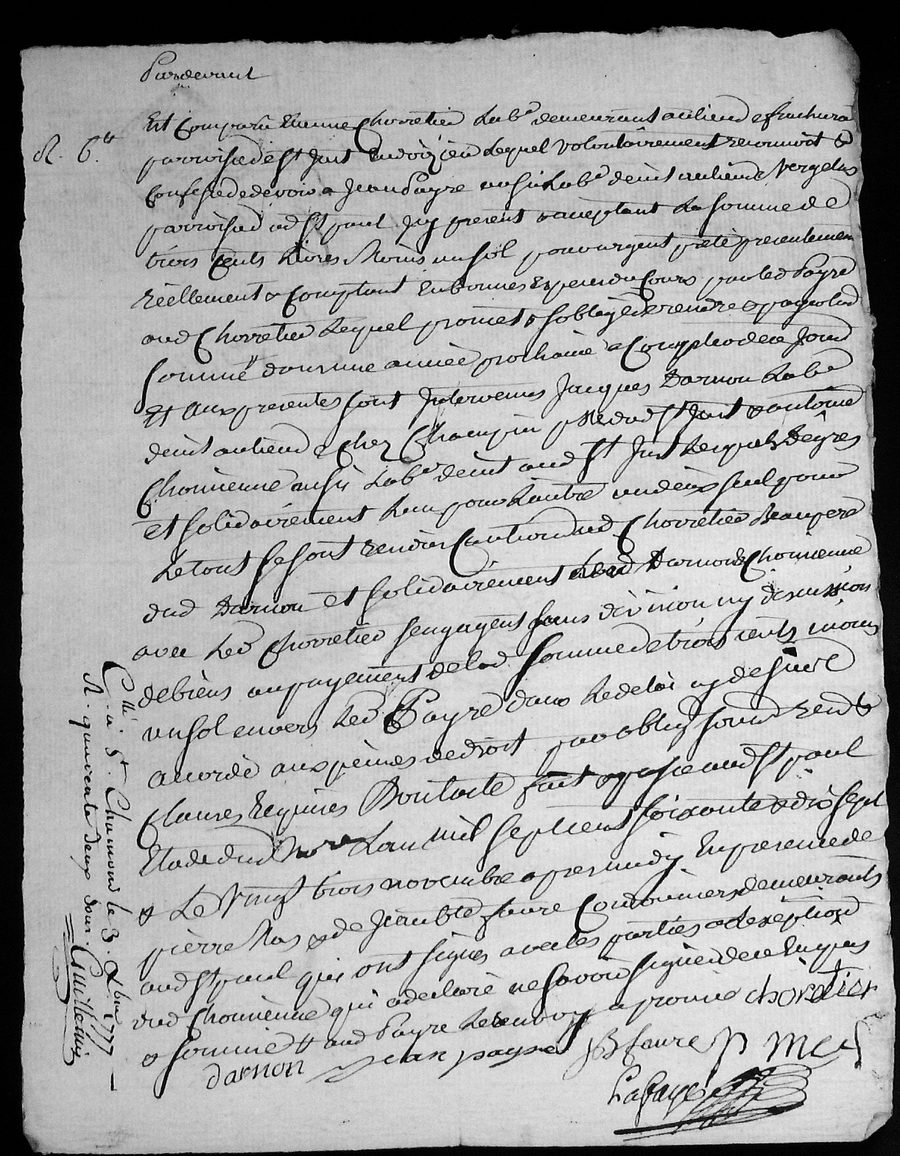 Pardevant
R. 6.lt
Est Comparu Etienne Chorretier Labr demeurant au lieu de
parroisse de St Just en doizieu Lequel Volontairement reconnoit &
Confesse de devoir a Jean Payre aussi Labr demt au lieu de Vergelas
parroisse dud St paul icy present & acceptant La somme de
trois Cents Livres Moins un sol pour argent prété presentement
réellement & Comptant En bonnes Especes du Cours par led Payre
aud Chorretier Lequel promet & s'oblige de rendre & payer lad
somme dans une année prochaine a Compter de ce jour
Et aux presentes sont Intervenus Jacques Darnon Labr
demt au lieu de chez Champin psse dud St Just & antoine
Chomienne aussi Labr demt aud St Just Lesquels de grés
et solidairement L'un pour L'autre un d'eux seul pour
Le tout se sont rendus Caution dud Chorretier Beaupere
dud Darnon et solidairement Lesd Darnon & Chomienne
avec Led Chorretier s'engagent sans division ny discussion
de biens au payement de lad somme de trois cents moins
un sol envers Led Payre dans Le delai cy dessus
accordé aux peines de droit par oblig soum renon &
Clauses Requises Dont acte fait & passé aud St paul
Etude dud Nore L'an mil sept cent soixante & dix sept
& Le Vingt trois novembre apres midy En presence de
pierre Mas & de Jean bte faure Cordonniers demeurants
aud St paul qui ont signé avec les parties a L'exéption
dud Chomienne qui a declaré ne savoir signer de ce Enquis
& sommé & aud Payre approuvé choretier
darnon jean payre JB faure P mas
Lafay
C.llé a St Chamond le 3. Xbre 1777
R. quarante deux sous. Guillemin